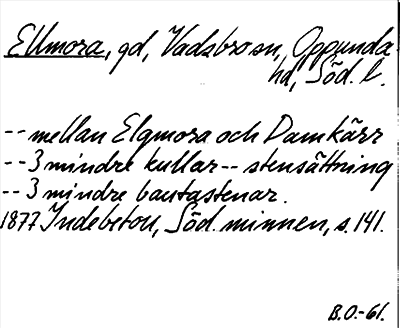 Ellmora, gd, Vadsbro sn, Oppunda
hd, Söd. l.
-- mellan Elgmora och Damkärr
-- 3 mindre kullar -- stensättning
-- 3 mindre bautastenar.
1877 Indebetou, Söd. minnen, s. 141.
B.O.-61.